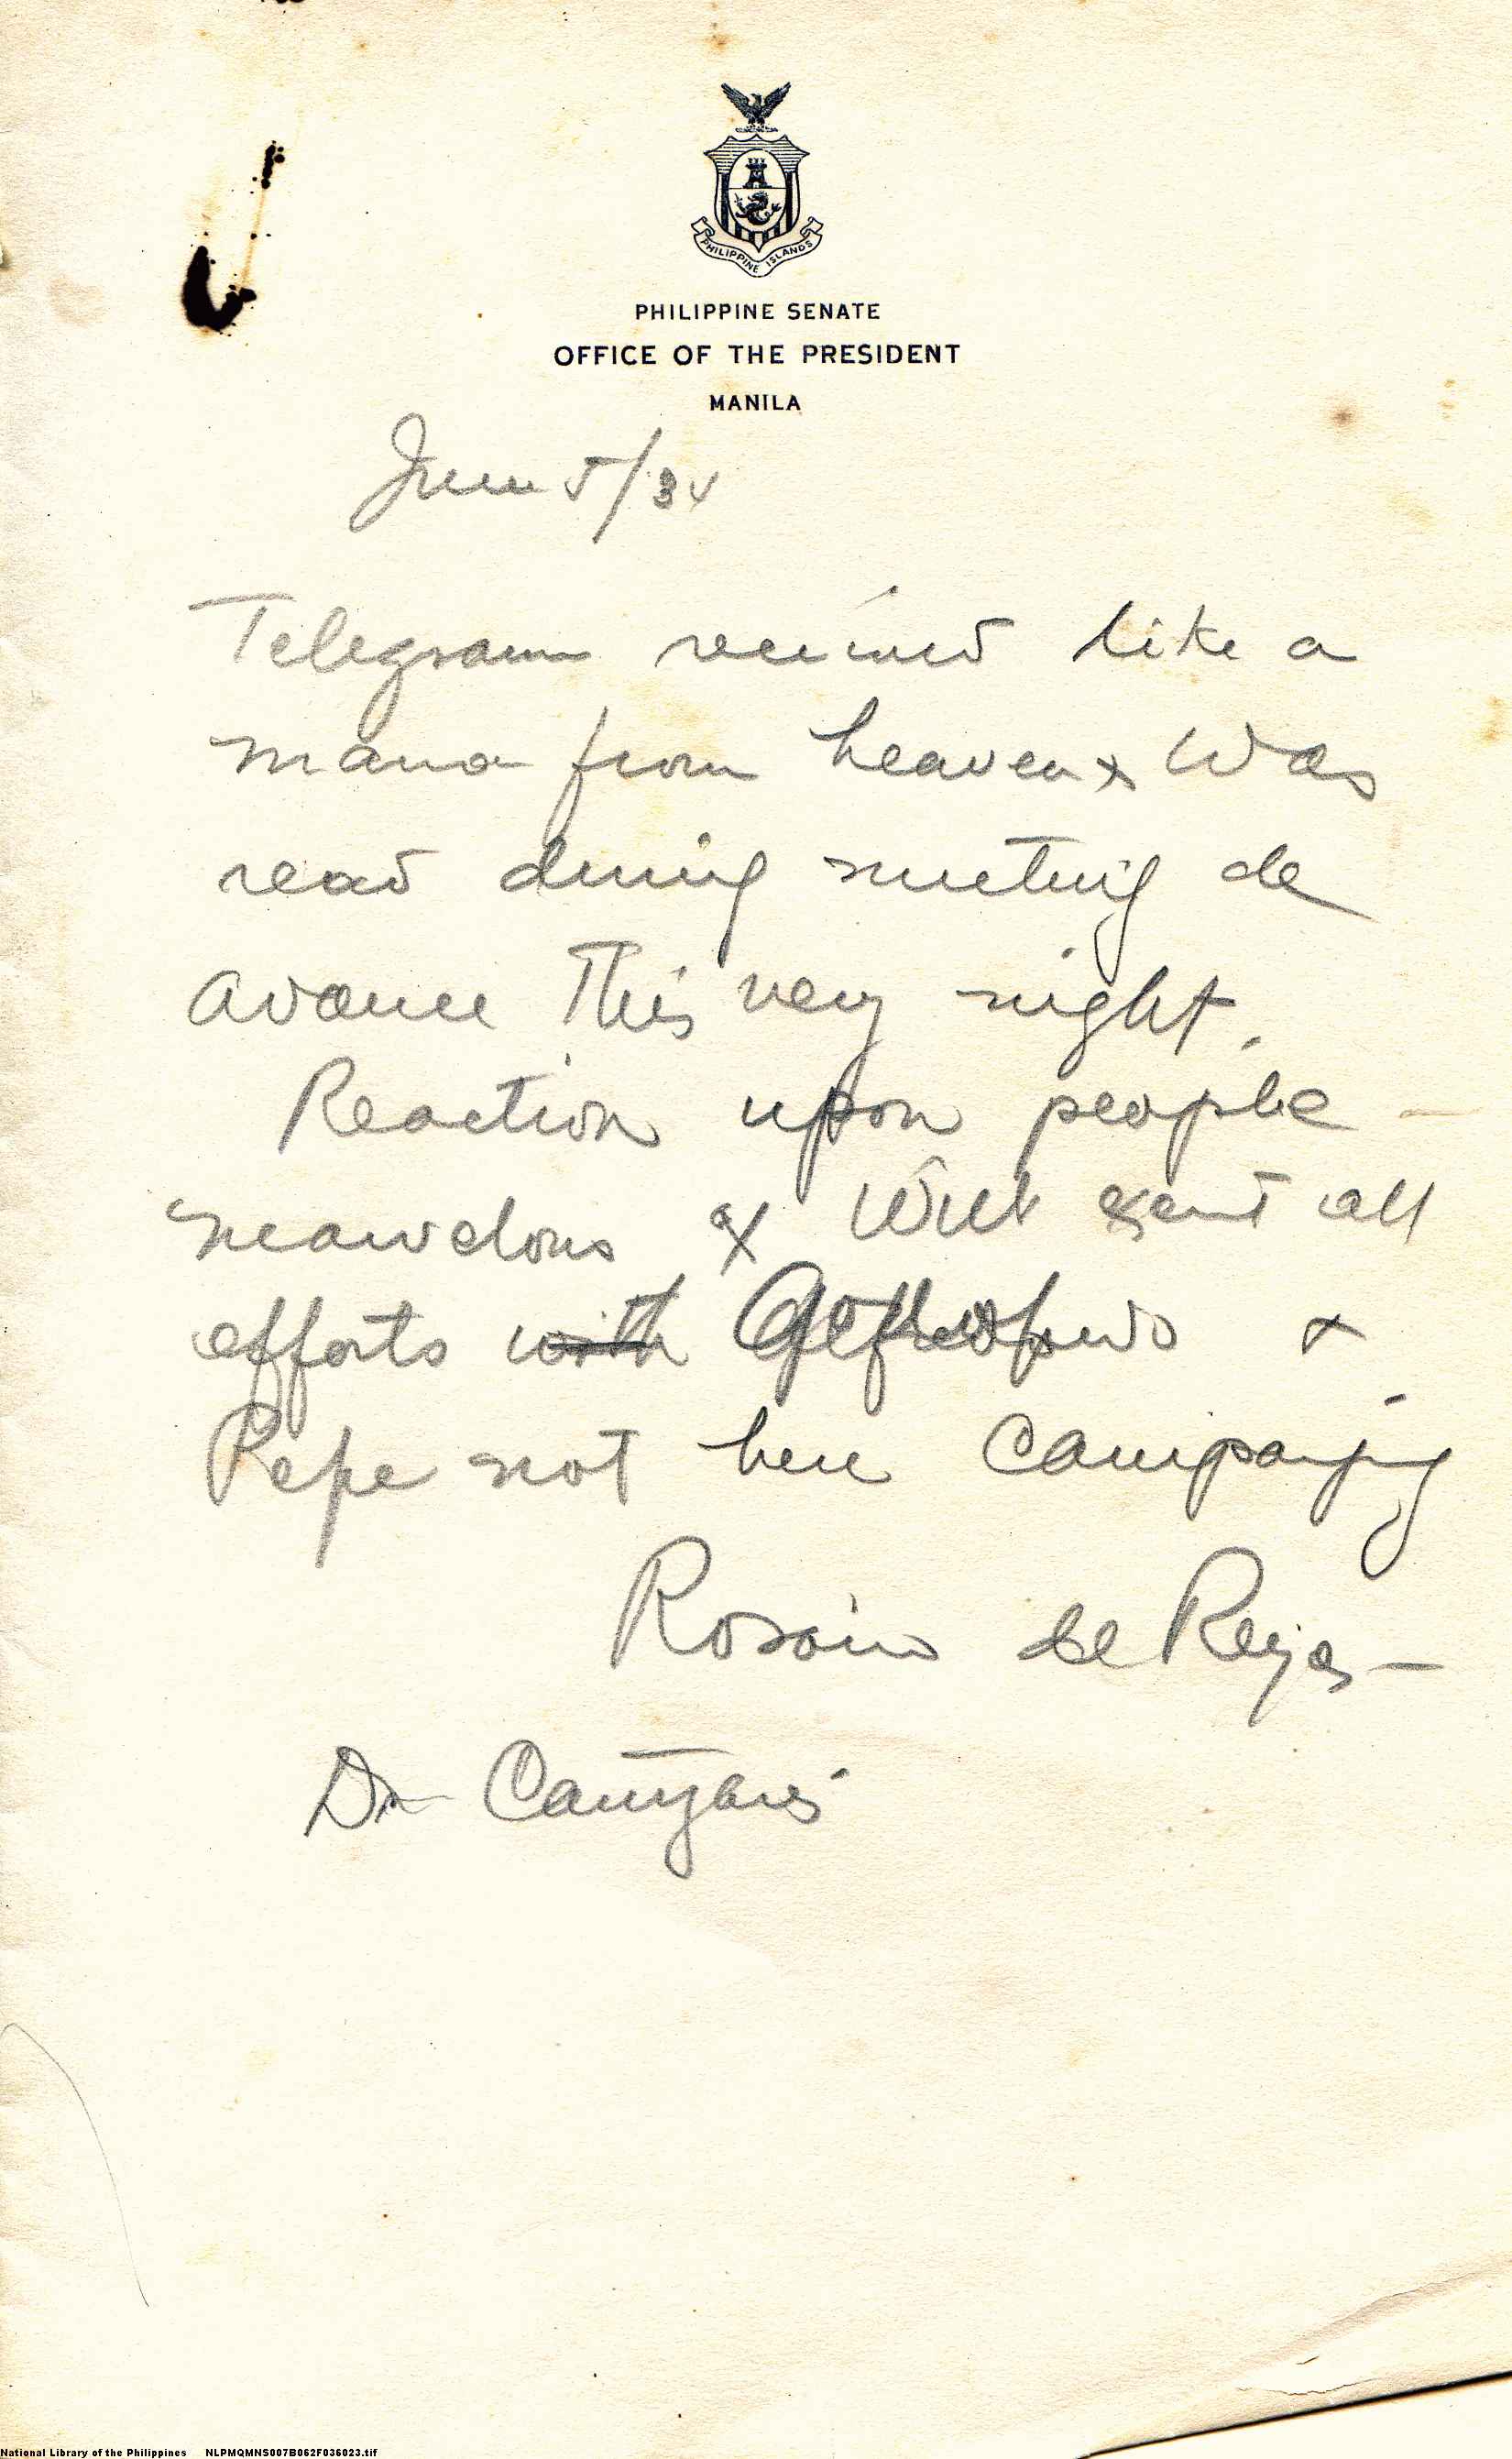 PHILIPPINE ISLANDS
PHILIPPINE SENATE
OFFICE OF THE PRESIDENT
MANILA
June 5/34
Telegram received like a
mana from heaven x Was
read during meeting de
avance this very night.
Reaction upon people
marvelous x Will exert all
efforts with x
Pepe not here campaigning
Rosario de Reyes –
Dr
National Library of the Philippines NLPMQMNS007B062F036023.tif